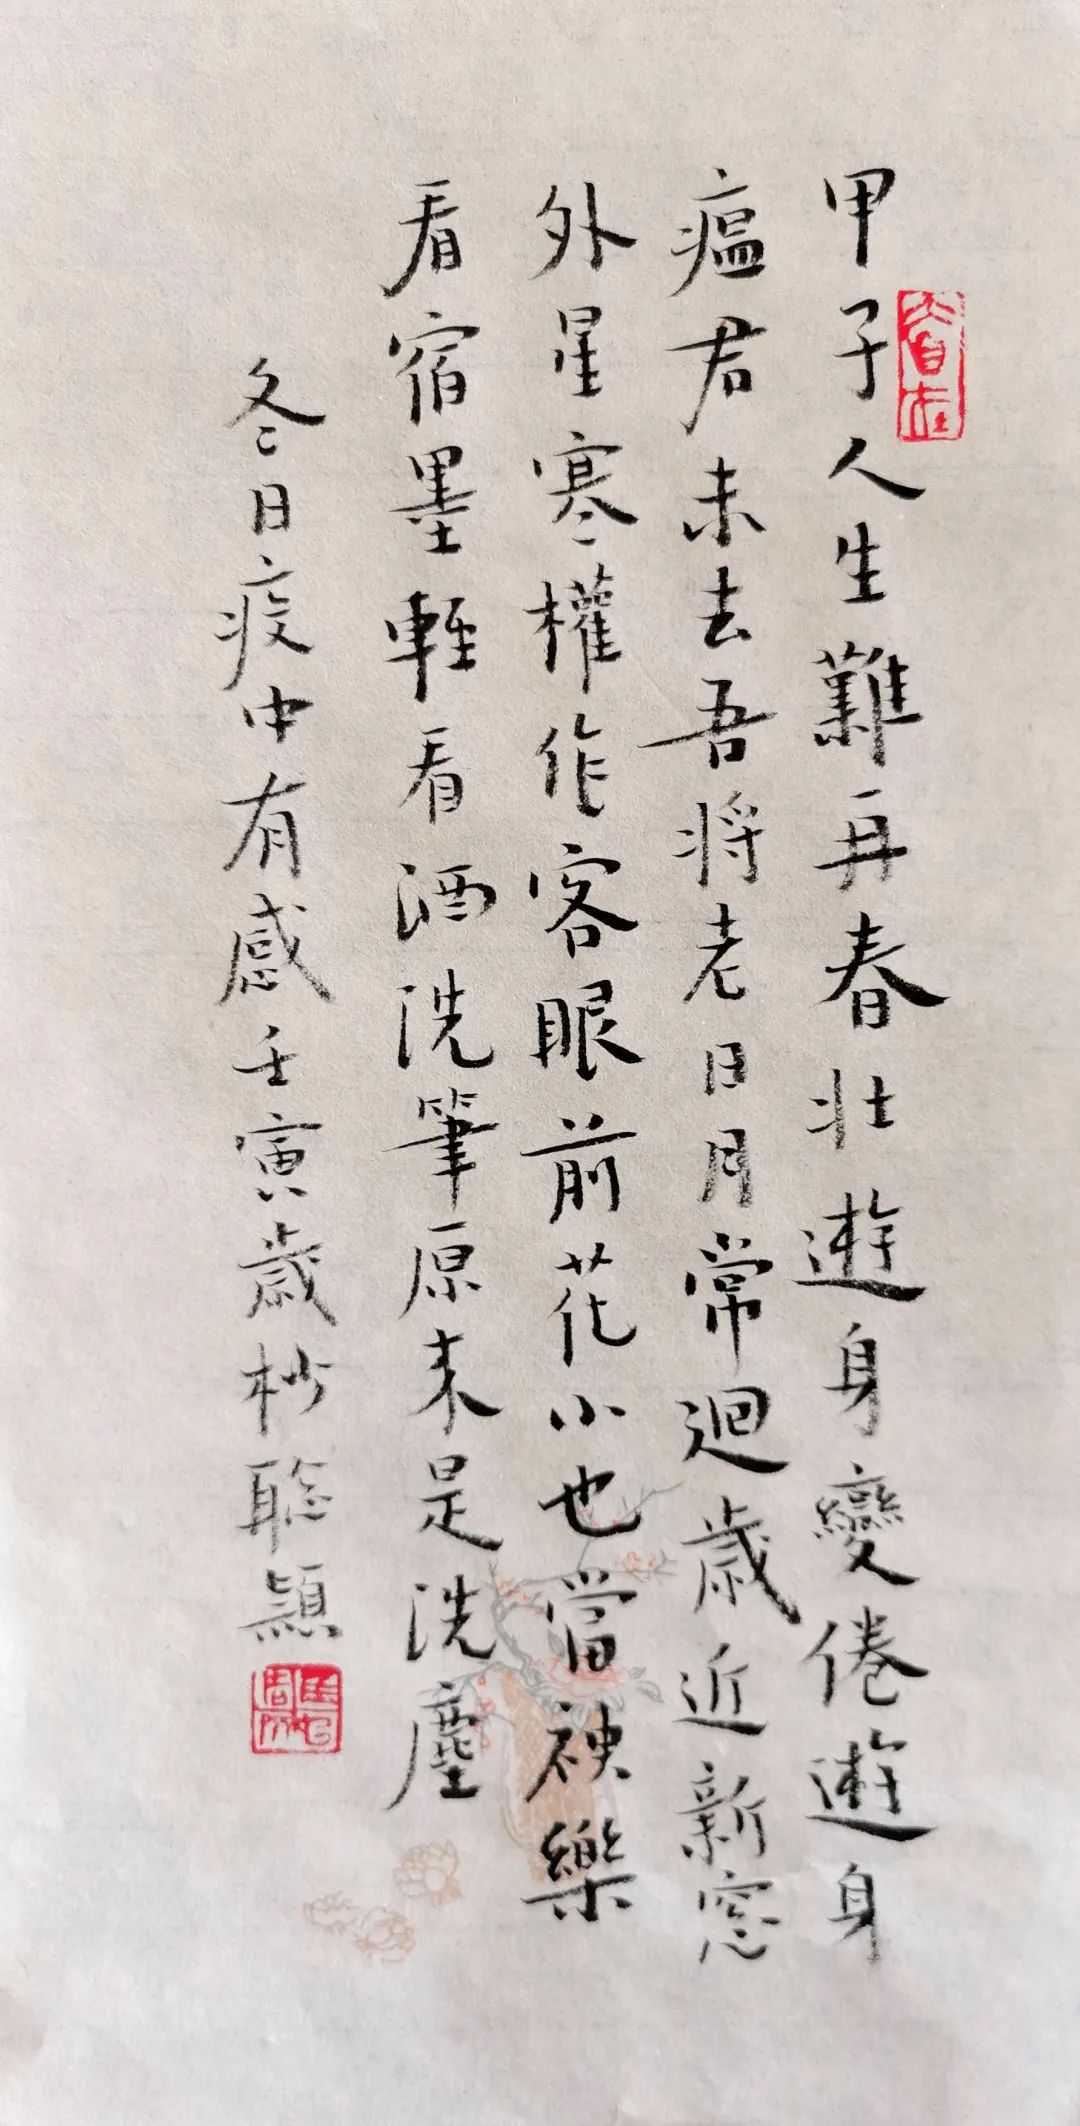 甲子人生難再春壯遊身變倦遊身
瘟君未去吾將老日月常迴歲近新窓
外星寒權作客眼前花小也當裀樂
看宿墨輕看酒洗筆原来是洗塵
冬日疫中有感壬寅歲杪聡顥